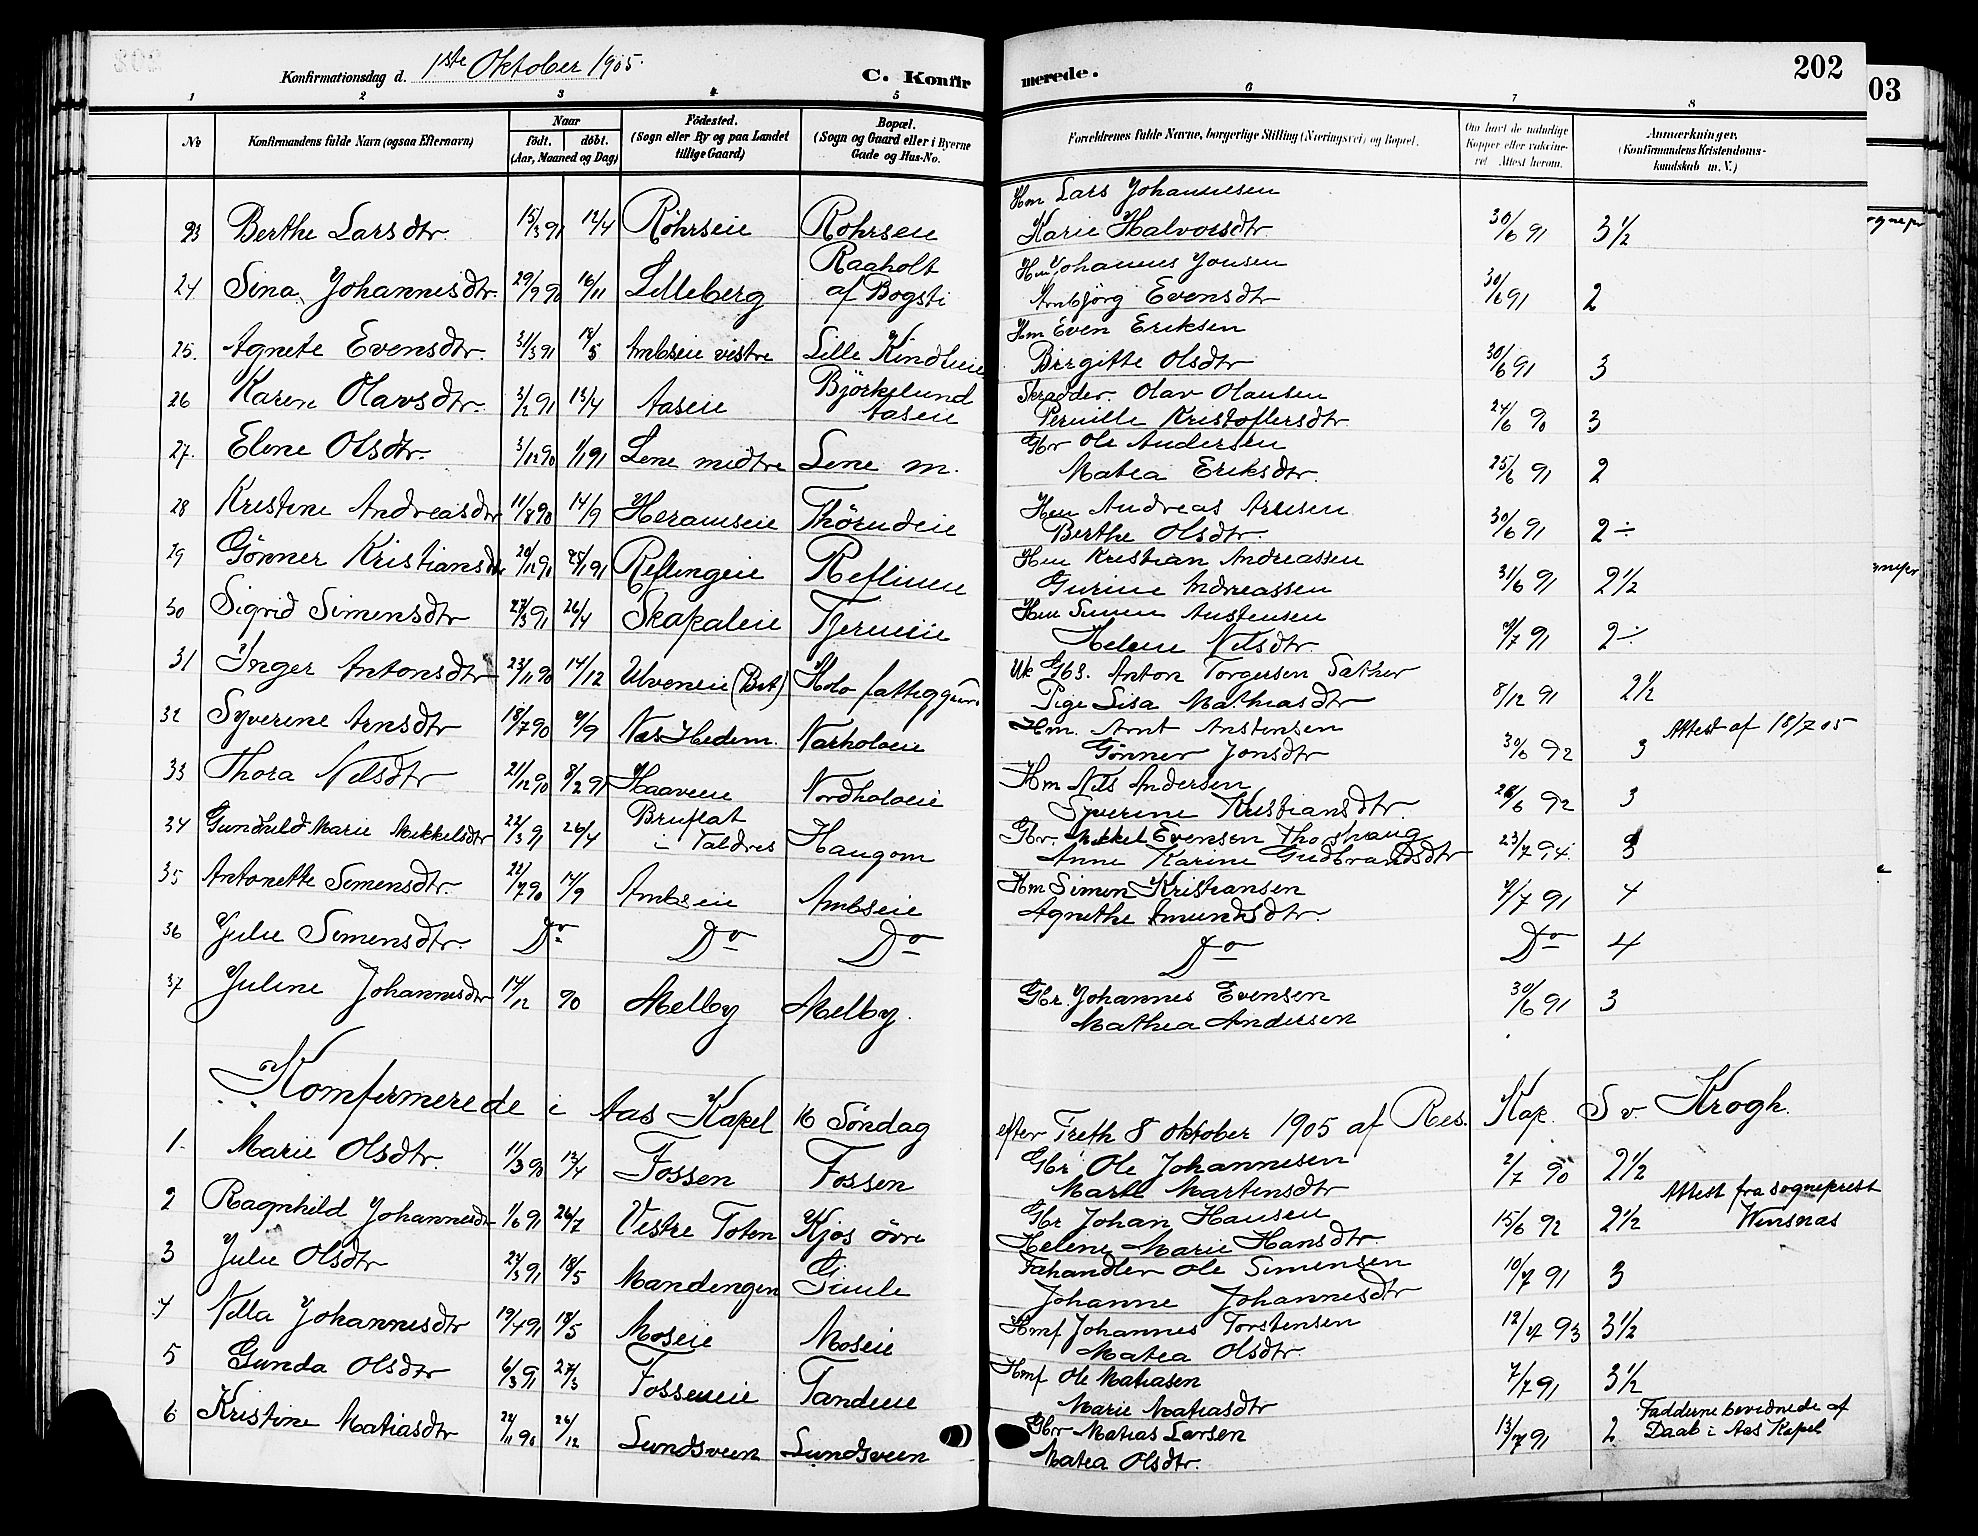 202
03
Konfirmationsdag d. 1ste Oktober 1905.
C. Konfirmerede.
1 2 3 4 5 6 7 8
No
Konfirmandens fulde Navn (ogsaa Efternavn)
Naar
født. døbt.
(Aar, Maaned og Dag)
Fødested.
(Sogn eller By og paa Landet
tillige Gaard)
Bopæl.
(Sogn og Gaard eller i Byerne
Gade og Hus-No.
Forældrenes fulde Navne, borgerlige Stilling (Næringsvei) og Bopæl.
Om havt de naturlige
Kopper eller vaksine-
ret. Attest herom.
Anmærkninger.
(Konfirmandens Kristendoms-
kundskab m. V.)
Hm Lars Johannesen
23 Berthe Larsdtr. 15/3 91 12/4 Röhrseie Röhrseie Karie Halvorsdtr. 30/6 91 3 1/2
Raaholt Hm Johannes Jonsen
24 Sina Johannesdtr. 29/9 90 16/11 Lilleberg af Bogsti Arnbjörg Evensdtr 30/6 91 2
Hm Even Eriksen
25. Agnete Evensdtr. 31/3 91 18/5 Ambseie vestre Lille Kindlieie Birgitte Olsdtr 30/6 91 3
Björkelund Skrædder. Olav Olausen
26 Karen Olavsdtr. 3/2 91 13/4 Aaseie Aaseie Pernille Kristoffersdtr 24/6 90 3
Gbr Ole Andersen
27. Elene Olsdtr. 3/12 90 1/1 91 Lene midtre Lene m. Matea Eriksdtr. 25/6 91 2
Hm Andreas Arnesen
28 Kristine Andreasdtr 11/8 90 14/9 Heramseie Thörudeie Berthe Olsdtr. 30/6 91 2 ÷
Hm Kristian Andreassen
29 Gönner Kristiansdtr 20/12 90 25/1 91 Reflingeie Reflineie Gurine Andreassen 31/6 91 2 1/2
Hm Simen Anstensen
30 Sigrid Simensdtr 27/3 91 26/4 Skapaleie Tjerneie Helene Nilsdtr 9/7 91 2 ÷
Uk Gbs. Anton Torgersen Sæther
31 Inger Antonsdtr 23/11 90 14/12 Ulveneie (Brt) Holo fattiggaard Pige Lisa Mathiasdtr 8/12 91 2 1/2
Hm. Arnt Anstensen
32 Syverine Arnsdtr 18/7 90 9/9 Næs Hedem. Narholoeie Gönner Jonsdtr 30/6 92 3 Attest af 18/7 05
Hm Nils Andersen
33 Thora Nilsdtr 21/12 90 8/2 91 Haaveie Nordholoeie Syverine Kristiansdtr. 28/6 92 3
Bruflat Gbr. Mikkel Evensen Thorshaug
34 Gundhild Marie Mikkelsdtr 22/3 91 26/4 i Valdres Haugom Anne Karine Gudbrandsdtr 23/7 94. 3
Hm Simen Kristiansen
35 Antonette Simensdtr. 22/7 90 14/9 Ambseie Ambseie Agnethe Amundsdtr 9/7 91 4
36 Julie Simensdtr. Do Do Do Do Do 4
37 Juline Johannesdtr 14/12 90 Melby Melby. Gbr. Johannes Evensen 30/6 91 3
Mathea Andersen
Komfirmerede i Aas Kapel 16 Söndag efter Treth 8 oktober 1905 af Res. Kap. S v. Krogh.
1. Marie Olsdtr. 11/3 90 13/4 Fossen Fossen Gbr Ole Johannesen 2/7 90 2 1/2
Marte Martensdtr
2 Ragnhild Johannesdtr 1/6 91 26/7 Vestre Toten Kjös övre Gbr Johan Hansen 15/6 92 2 1/2 Attest fra sogneprest
Helene Marie Hansdtr. Winsnæs
3 Julie Olsdtr 22/3 91 18/5 Mandengen Giule Fæhandler Ole Simensen 10/7 91 3
Johanne Johannesdtr
4 Nilla Johannesdtr 19/4 91 18/5 Moseie Moseie Hmf Johannes Torstensen 12/7 93 3 1/2
Matea Olsdtr.
5 Gunda Olsdtr 6/3 91 27/3 Fosseneie Tandeie Hmf Ole Matiasen 7/7 91 3 1/2
Marie Matiasdtr
6 Kristine Matiasdtr 22/11 90 26/12 Lundsveen Lundsveen Gbr Matias Larsen 13/7 91 2 Fadderne bevidnede af
Matea Olsdtr. Daab i Aas Kapel